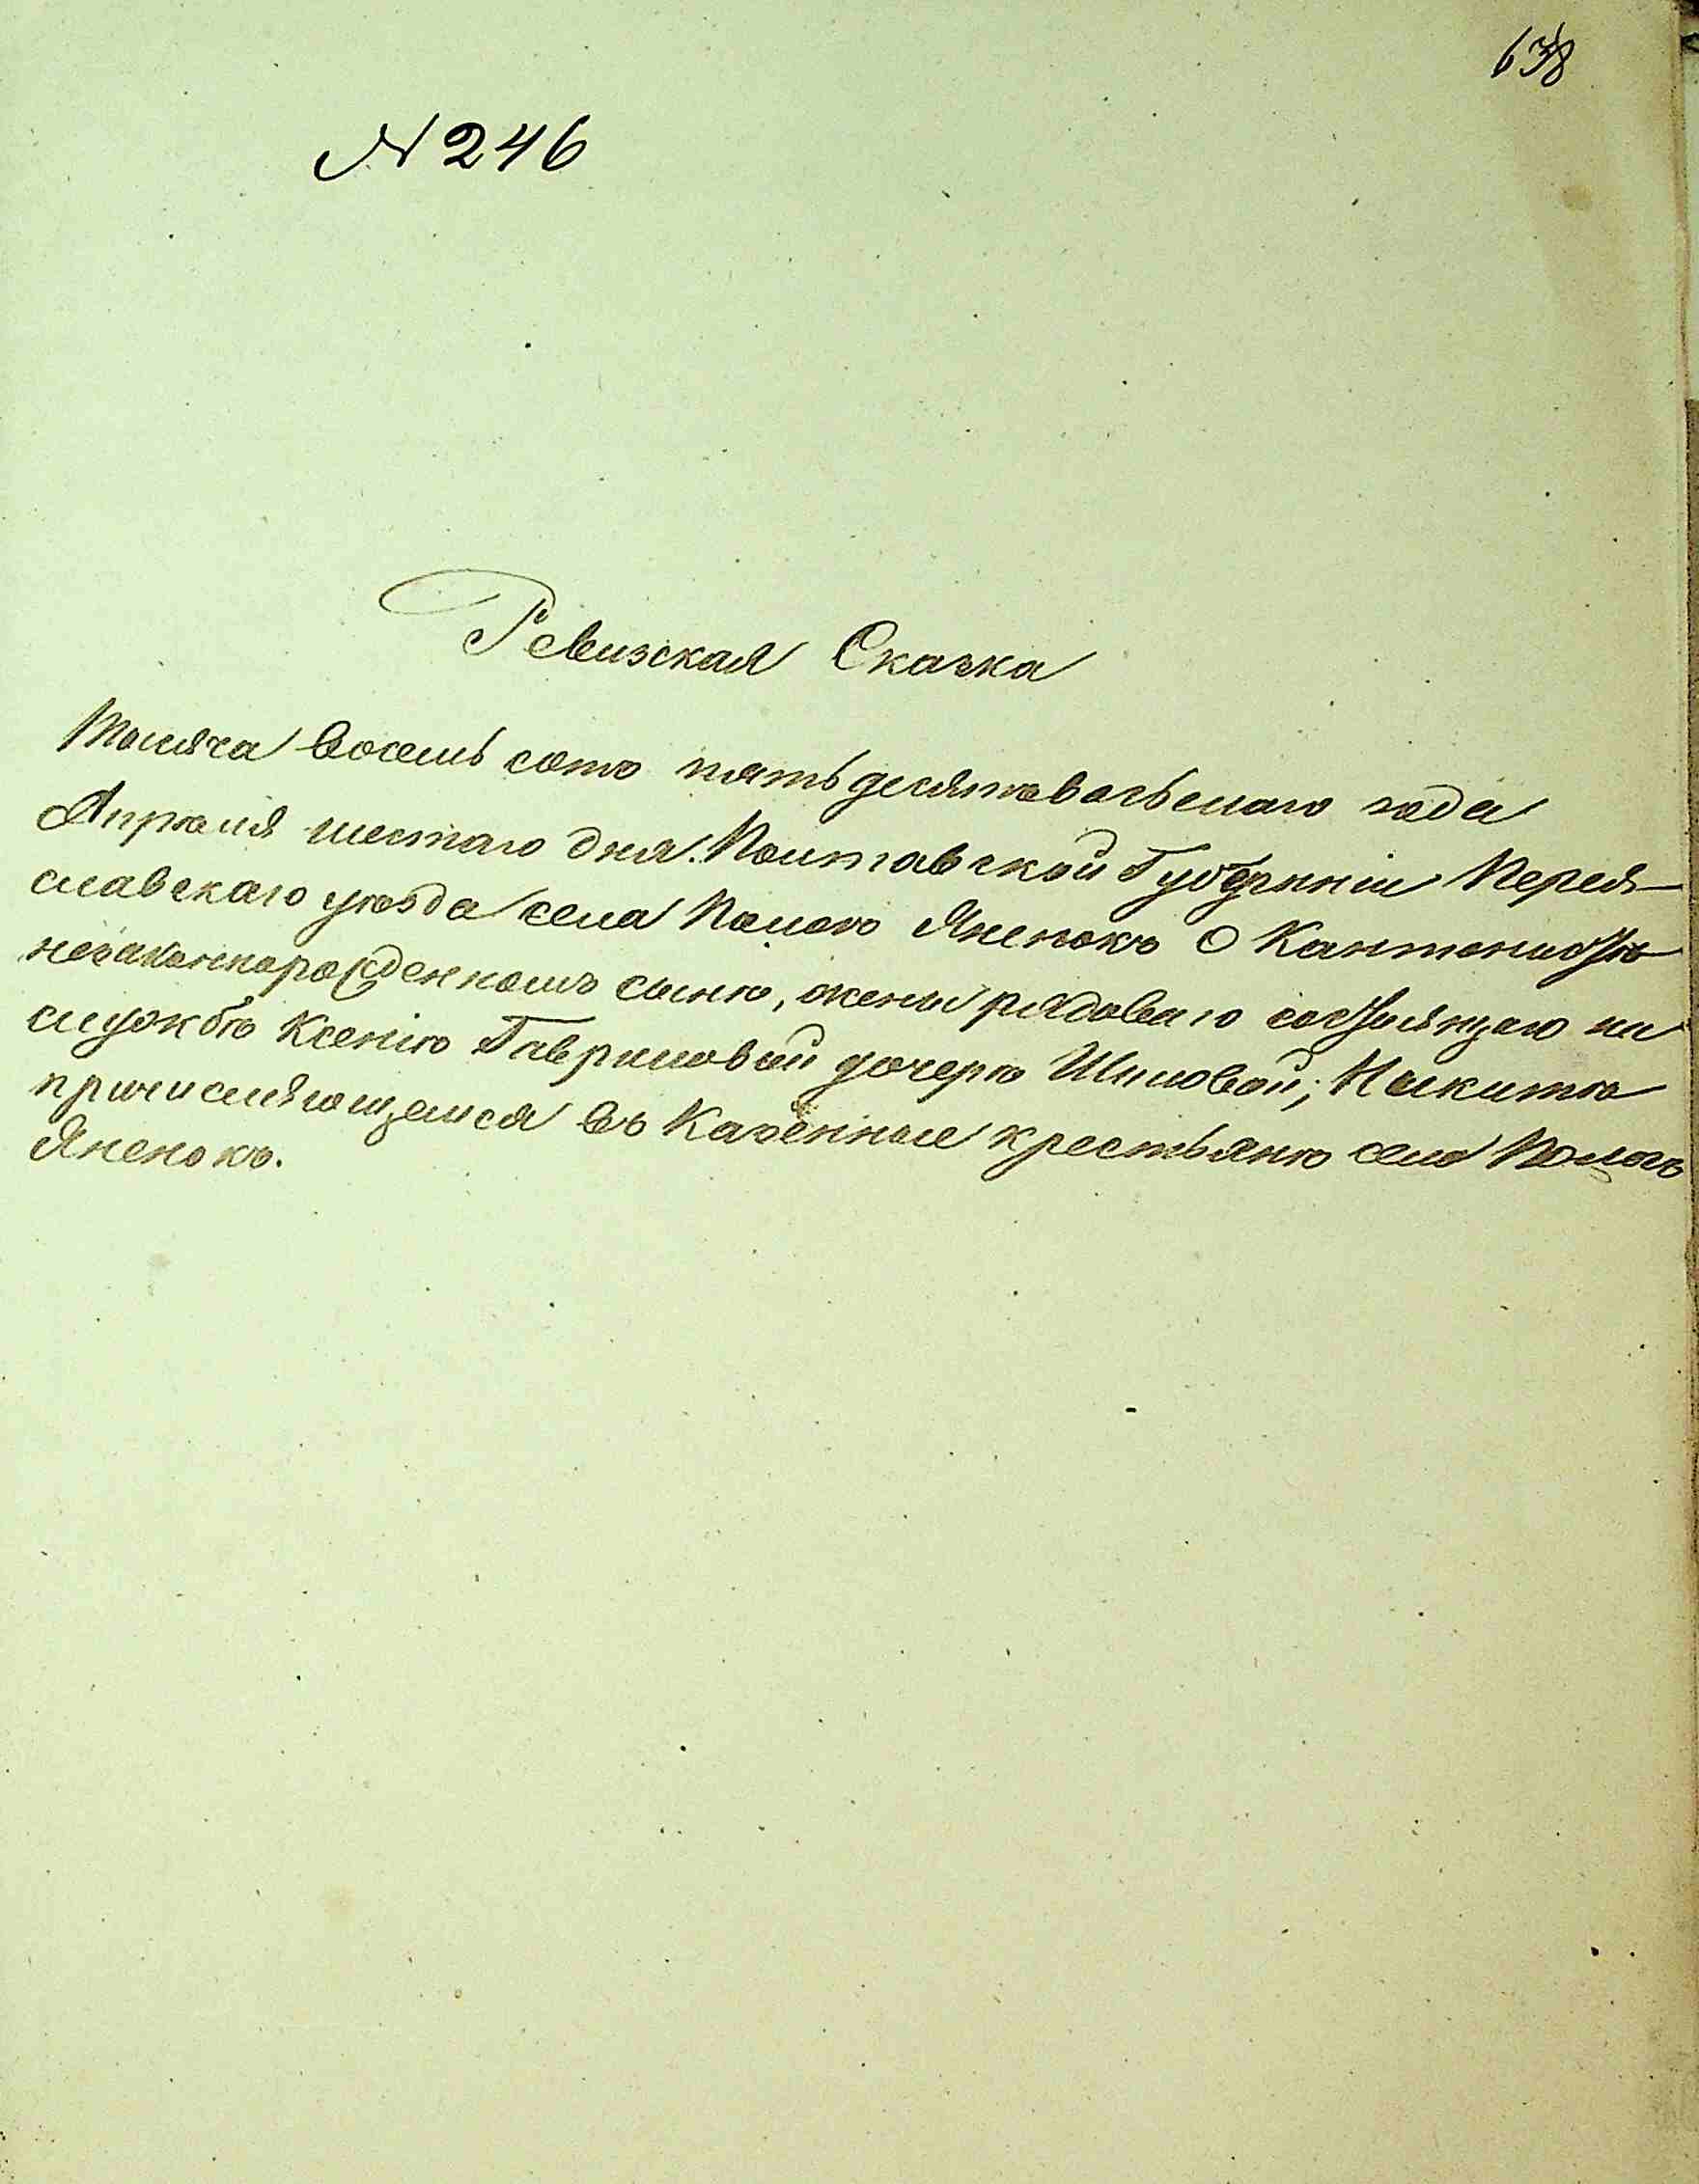 638
№ 246
Ревизская Сказка
Тысяча восемь сотъ пятьдесятъ восьмаго года
Апрѣля шестаго дня. Полтавской Губерніи Перея-
славскаго уѣзда села Пологъ Яненокъ О Кантонистѣ
незаконнорожденномъ сынѣ, жены рядоваго состоящаго на
службѣ Ксеніи Гавриловой дочери Шиловой; Никитѣ
причисляющемся въ Казенные крестьяне села Пологъ
Яненокъ.